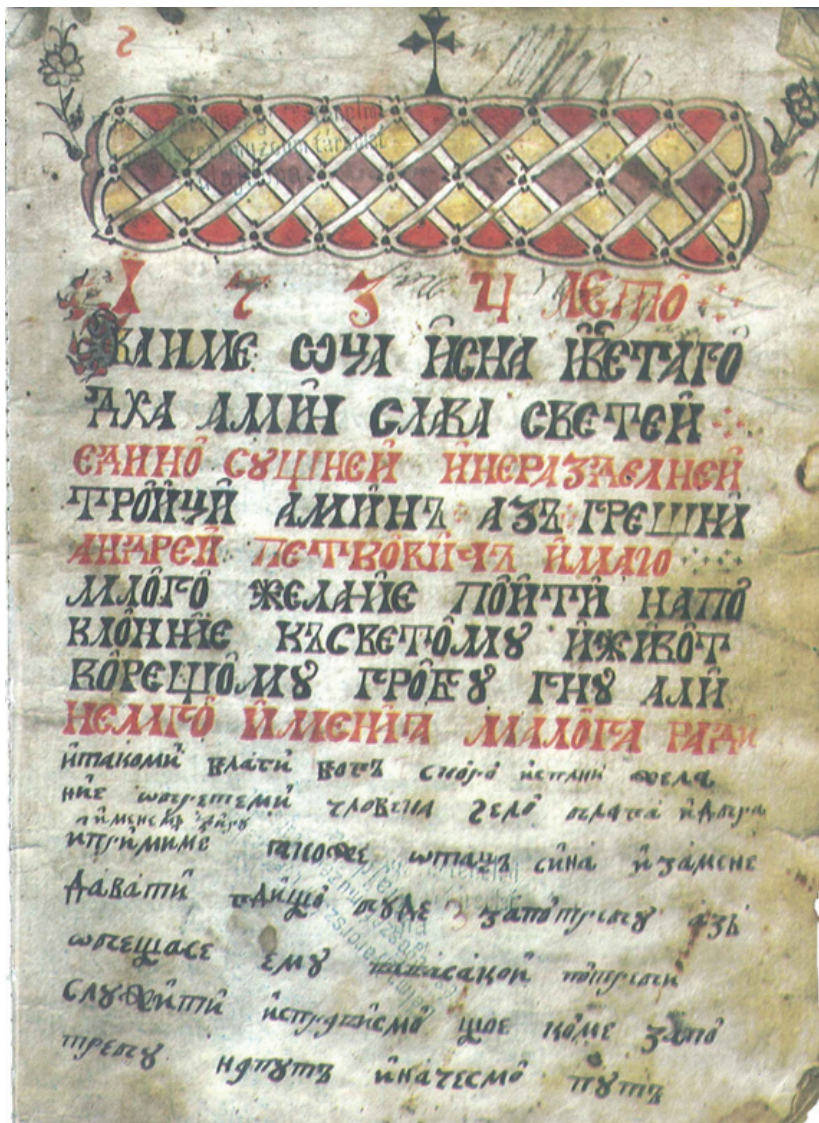 1 7 3 4 ЛЕТО
ВАИМЕ ѠЦА ИСНА ИСВЕТАГО
ДХА АМИН СЛАВА СВЕТЕЙ
ЕДИНО СУЩНЕЙ ИНЕРАЗДЕЛНЕЙ
ТРОЙЦИ АМИНЪ АЗЪ ГРЕШНИ
АНДРЕЙ ПЕТРОВИЧЪ ИМАГО
МЛОГО ЖЕЛАНИЕ ПОЙТИ НАПО
КЛОНИЕ КЪСВЕТОМУ ИЖИВОТ
ВОРЕЩОМУ ГРОБУ ГНУ АЛИ
НЕМАГО ИМЕНИГА МАЛОГА РАДИ
итакоми власти богъ скоро исплни жела
ние ѡбретеми человека ѕело блага идобра
ипримиме такоже ѡтацъ сина изамене
давати щो буде запотребу азъ
ѡбещасе ему
служити щое коме запо
требу напутъ иначесмо путъ